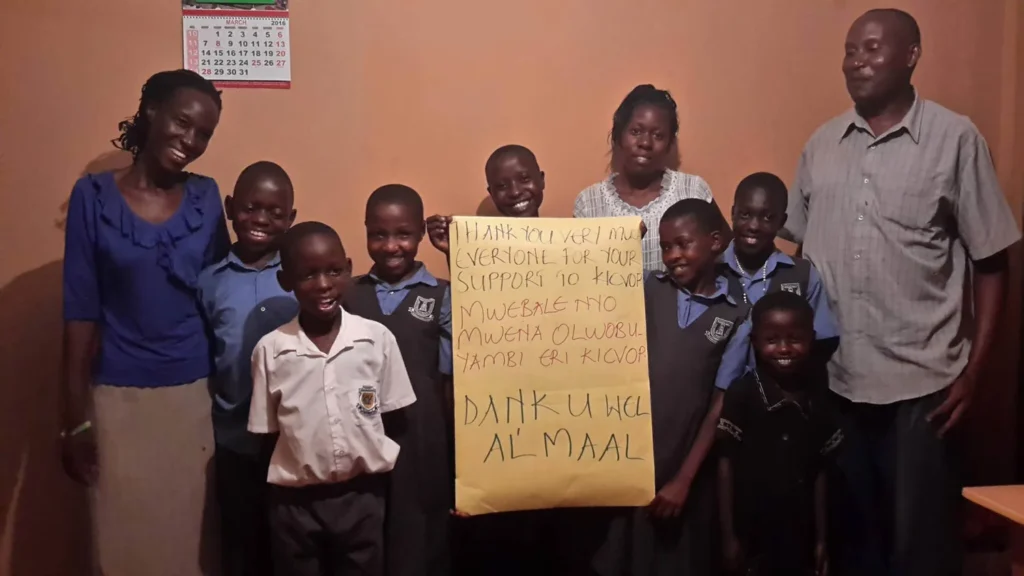 MARCH 2016
6
1 2 3 4 5 13
7 8 9 10 11 12 20
14 15 16 17 18 19 27
21 22 23 24 25 26
28 29 30 31
THANK YOU VERY MU
EVERYONE FOR YOUR
SUPPORT TO KICVOP
MWEBALE NYO
MWENA OLWOBU
YAMBI ERI KICVOP
DANK U WEL
AL' MAAL